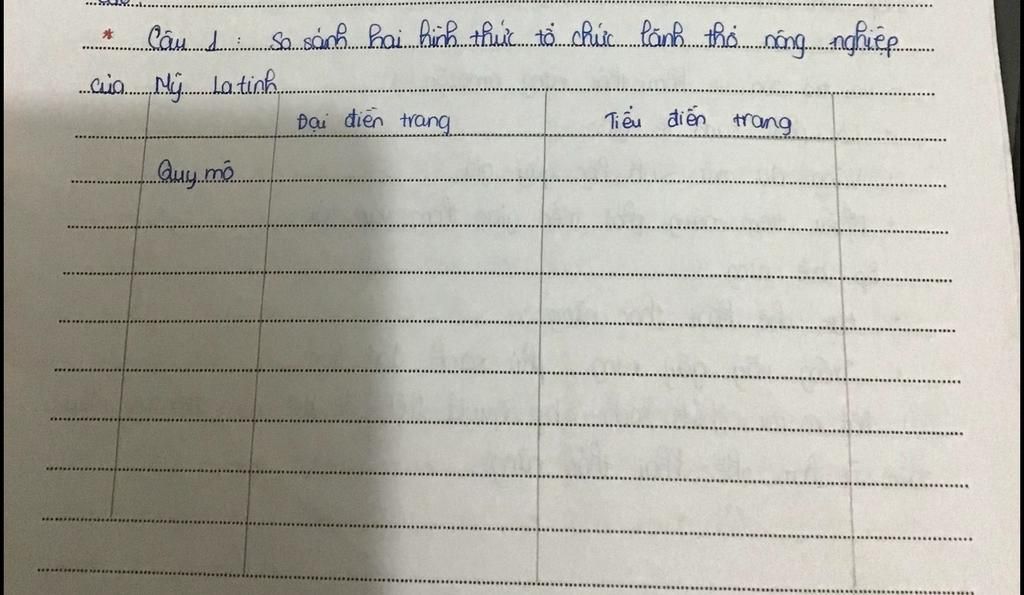 * Câu 1 : So sánh hai hình thức tổ chức lãnh thổ nông nghiệp
của Mỹ Latinh
Đại điền trang Tiểu điền trang
Quy mô